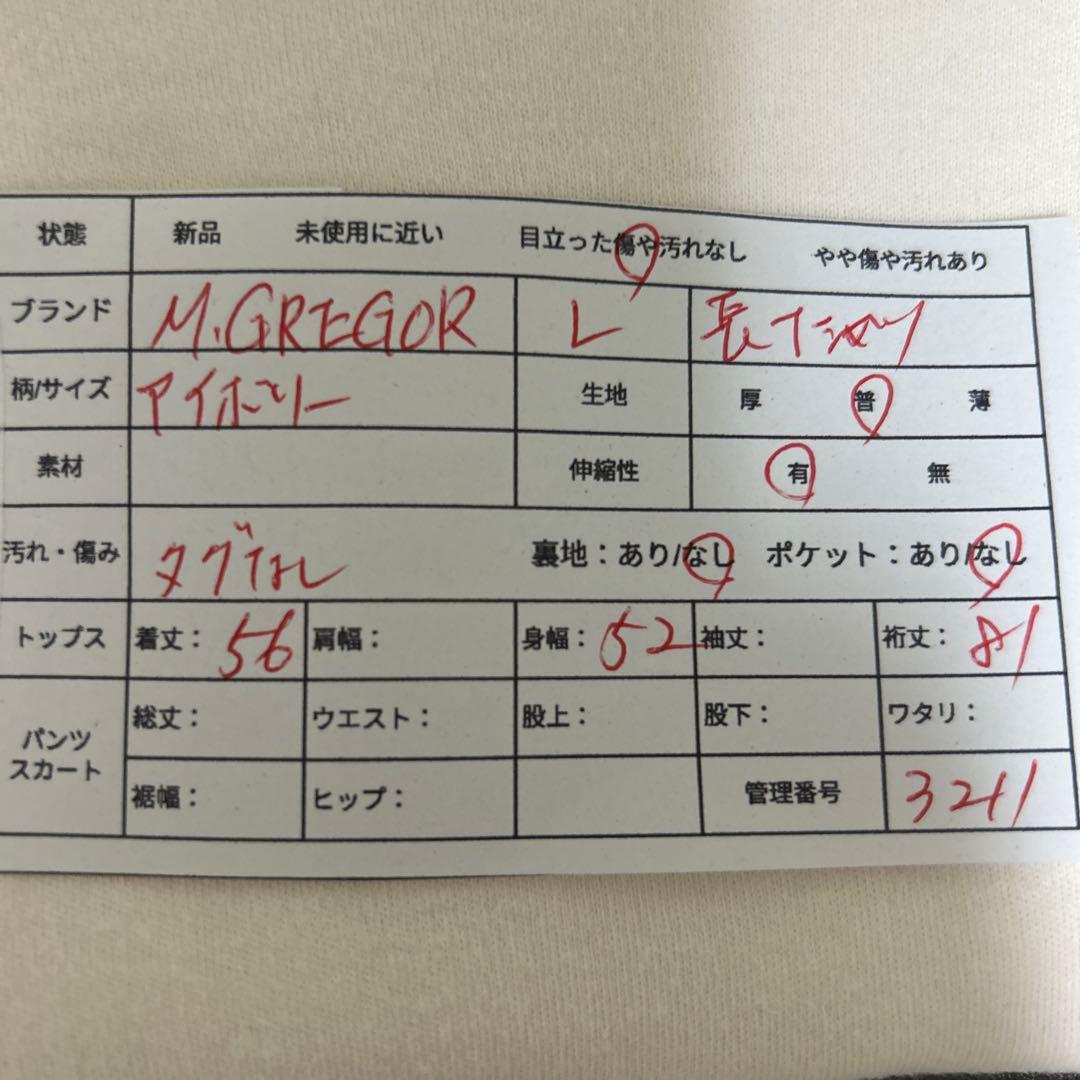 状態 新品 未使用に近い 目立った傷や汚れなし やや傷や汚れあり
ブランド M.GREGOR L 長Tシャツ
柄/サイズ アイボリー 生地 厚 普 薄
素材 伸縮性 有 無
汚れ・傷み タグなし 裏地：あり/なし ポケット：あり/なし
トップス 着丈：56 肩幅： 身幅：52 袖丈： 裄丈：81
パンツ スカート 総丈： ウエスト： 股上： 股下： ワタリ：
裾幅： ヒップ： 管理番号 3211